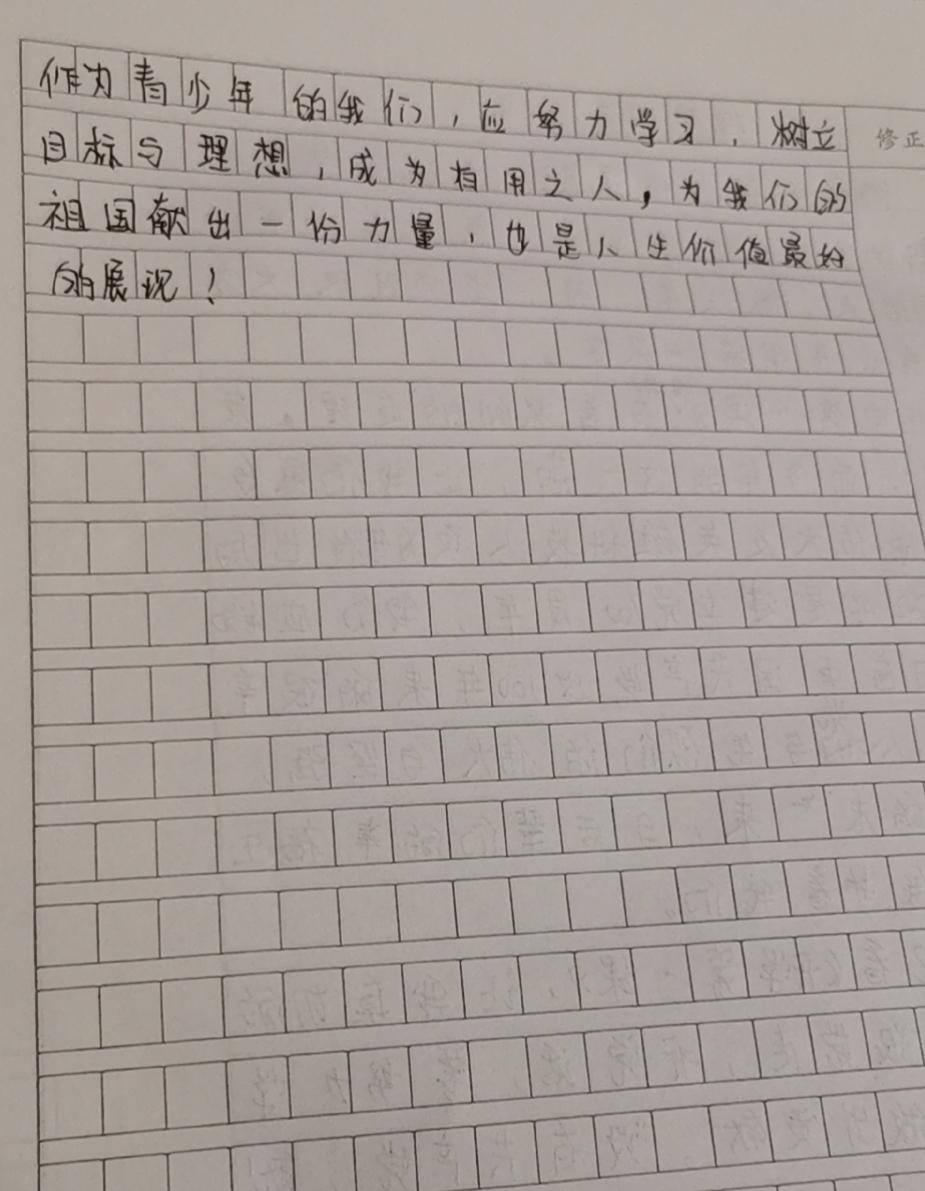 作为青少年的我们，应努力学习，树立
目标与理想，成为有用之人，为我们的
祖国献出一份力量，也是人生价值最好
的展现！
修正